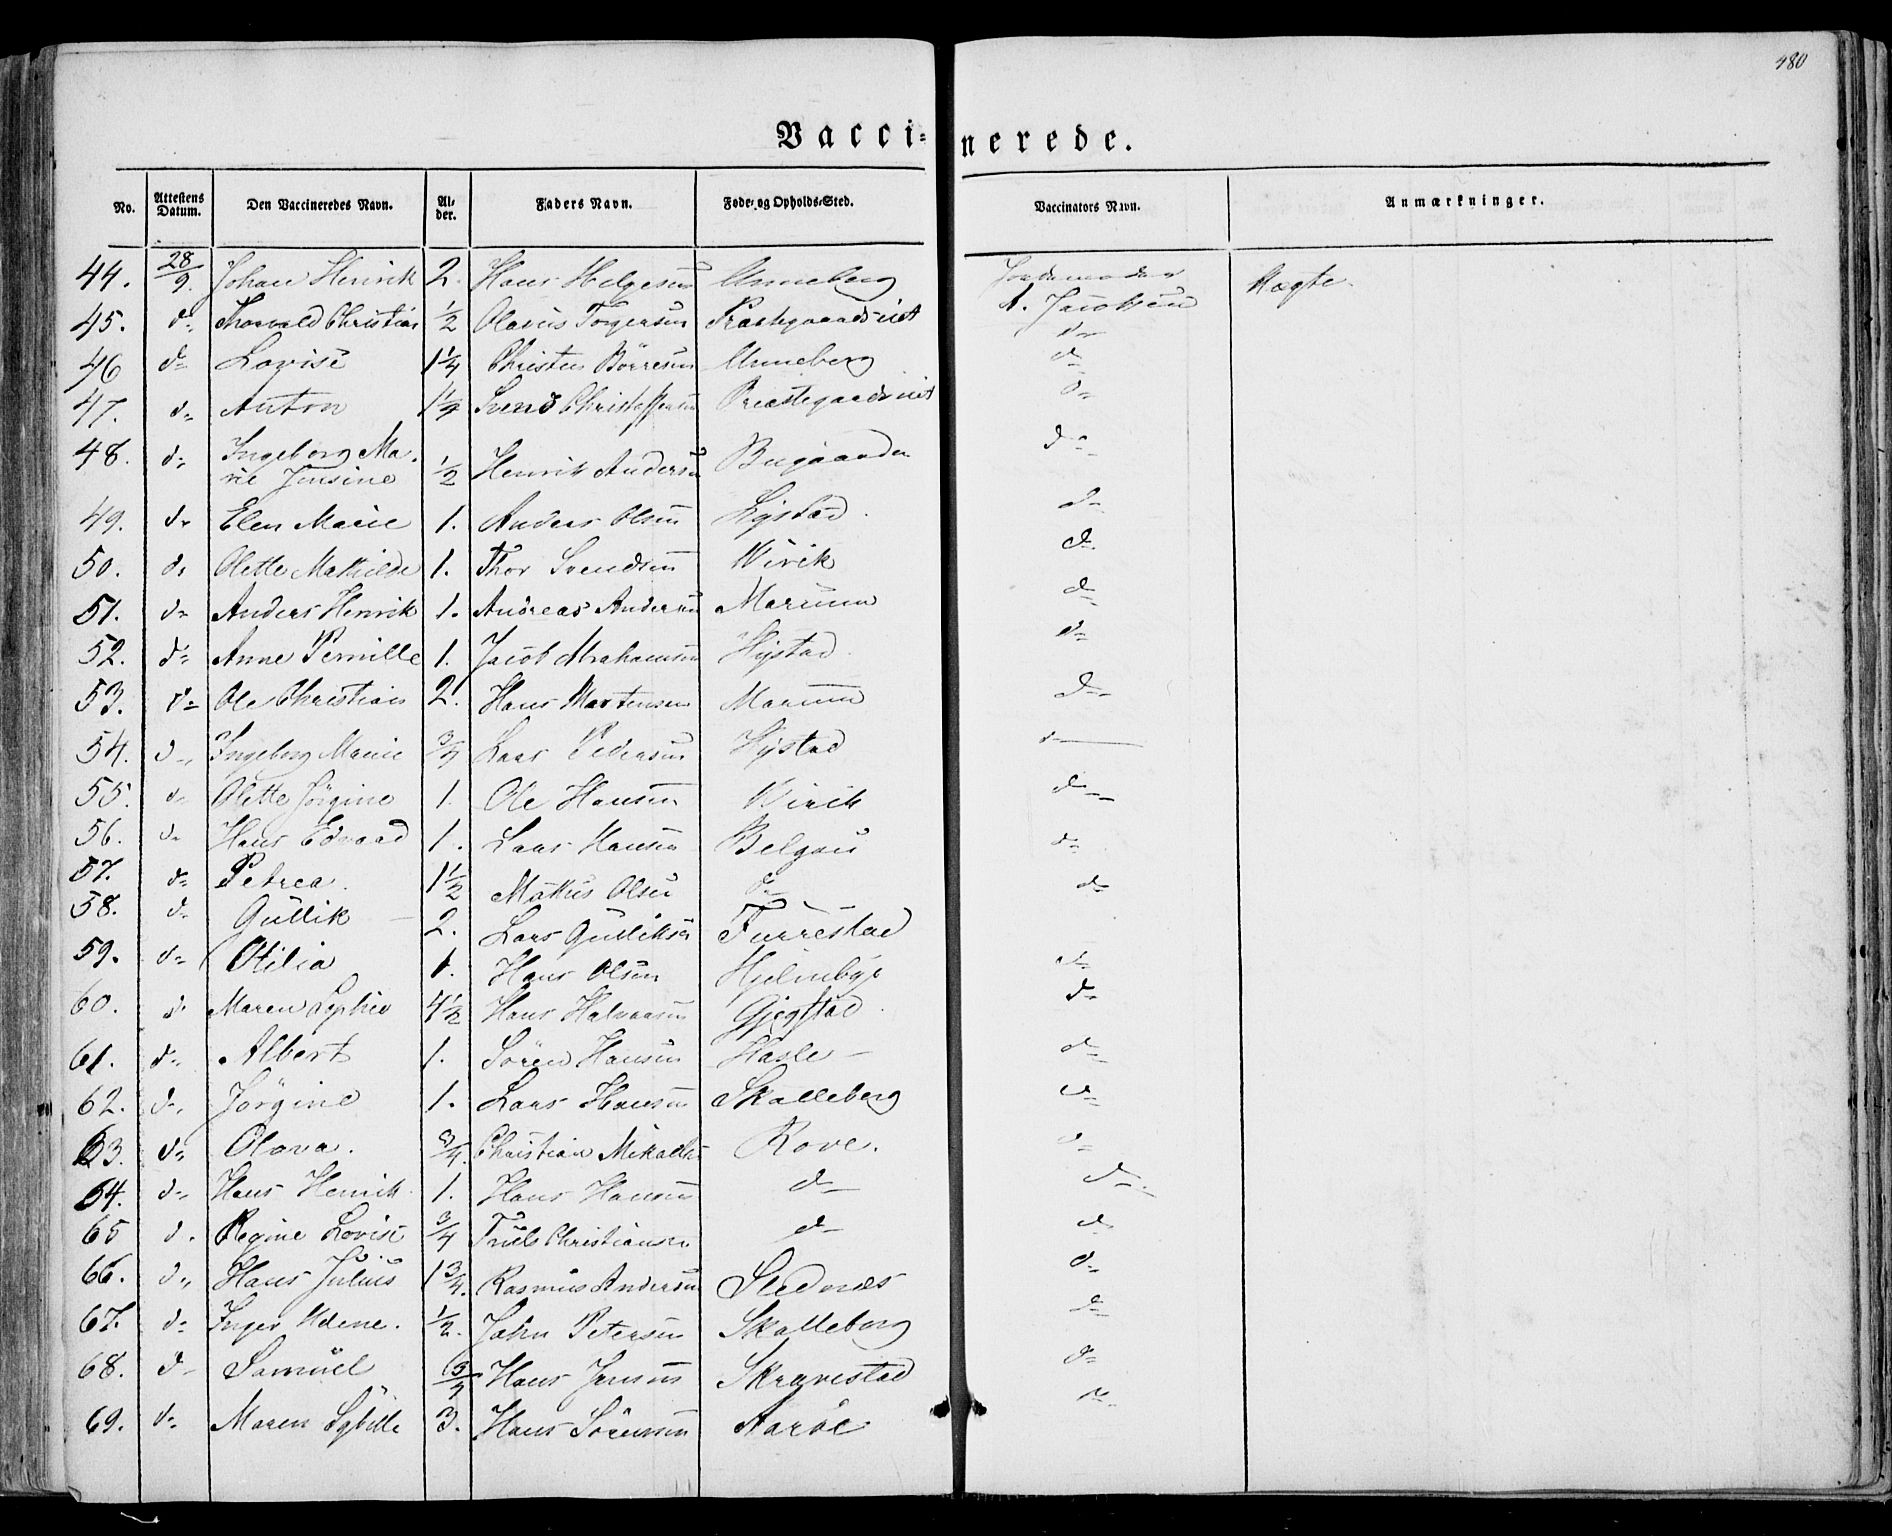 480
Vacci- nerede.
No. Attestens Datum. Den Vaccineredes Navn. Al- der. Faders Navn. Føde- og Opholds-Sted. Vaccinators Navn. Anmærkninger.
44. 28/9. Johan Henrik 2. Hans Helgesen Unneberg Jordemoder A. Jacobsen Ægte.
45. do Thorvald Christian 1/2 Olavus Torgersen Præstegaards d-
46 do Lovise 1 1/4 Christen Börresen Unneberg d-
47. d- Anton 1 1/4 Svend Christoffersen Præstegaards d-
48. d- Ingeborg Ma- rie Jensine 1/2 Henrik Andersen Bugaarden d-
49. d- Elen Marie 1. Anders Olsen Lystad d-
50. d- Olette Mathilde 1. Thor Svendsen Wirik d-
51. d- Anders Henrik 1. Andreas Andersen Marum d-
52. d- Anne Pernille 1. Jacob Abrahamsen Hystad d-
53. d- Ole Christian 2. Hans Mortensen Marum d-
54. d- Ingeborg Marie 3/4 Lars Pedersen Hystad d-
55. d- Olette Jörgine 1. Ole Hansen Wirik d-
56. d- Hans Edvard 1. Lars Hansen Belgau d-
57. d- Petrea. 1 1/2 Mathis Olsen d- d-
58. d- Gullik 2. Lars Gulliksen Furrestad
59. d- Otilia 1. Hans Olsen Hjelmbye d-
60. d- Maren Sophie 4 1/2 Hans Halvorsen Gjegstad d-
61. d- Albert 1. Sören Hansen Hasle d-
62. d- Jörgine 1. Lars Hansen Skalleberg d-
63. d- Olava. 3/4. Christian Mikaels Rove. d-
64. d- Hans Henrik 1. Hans Hansen d- d-
65 d. Regine Lovise 3/4 Truls Christiansen d- d-
66. d- Hans Julius 1 3/4. Rasmus Andersen Stednæs d-
67. d- Inger Helene. 1/2. John Petersen Skalleberg d-
68. d- Samuel 3/4 Hans Jensen Skravestad d-
69. d- Maren Sybille 3. Hans Sörensen Aaröe d-